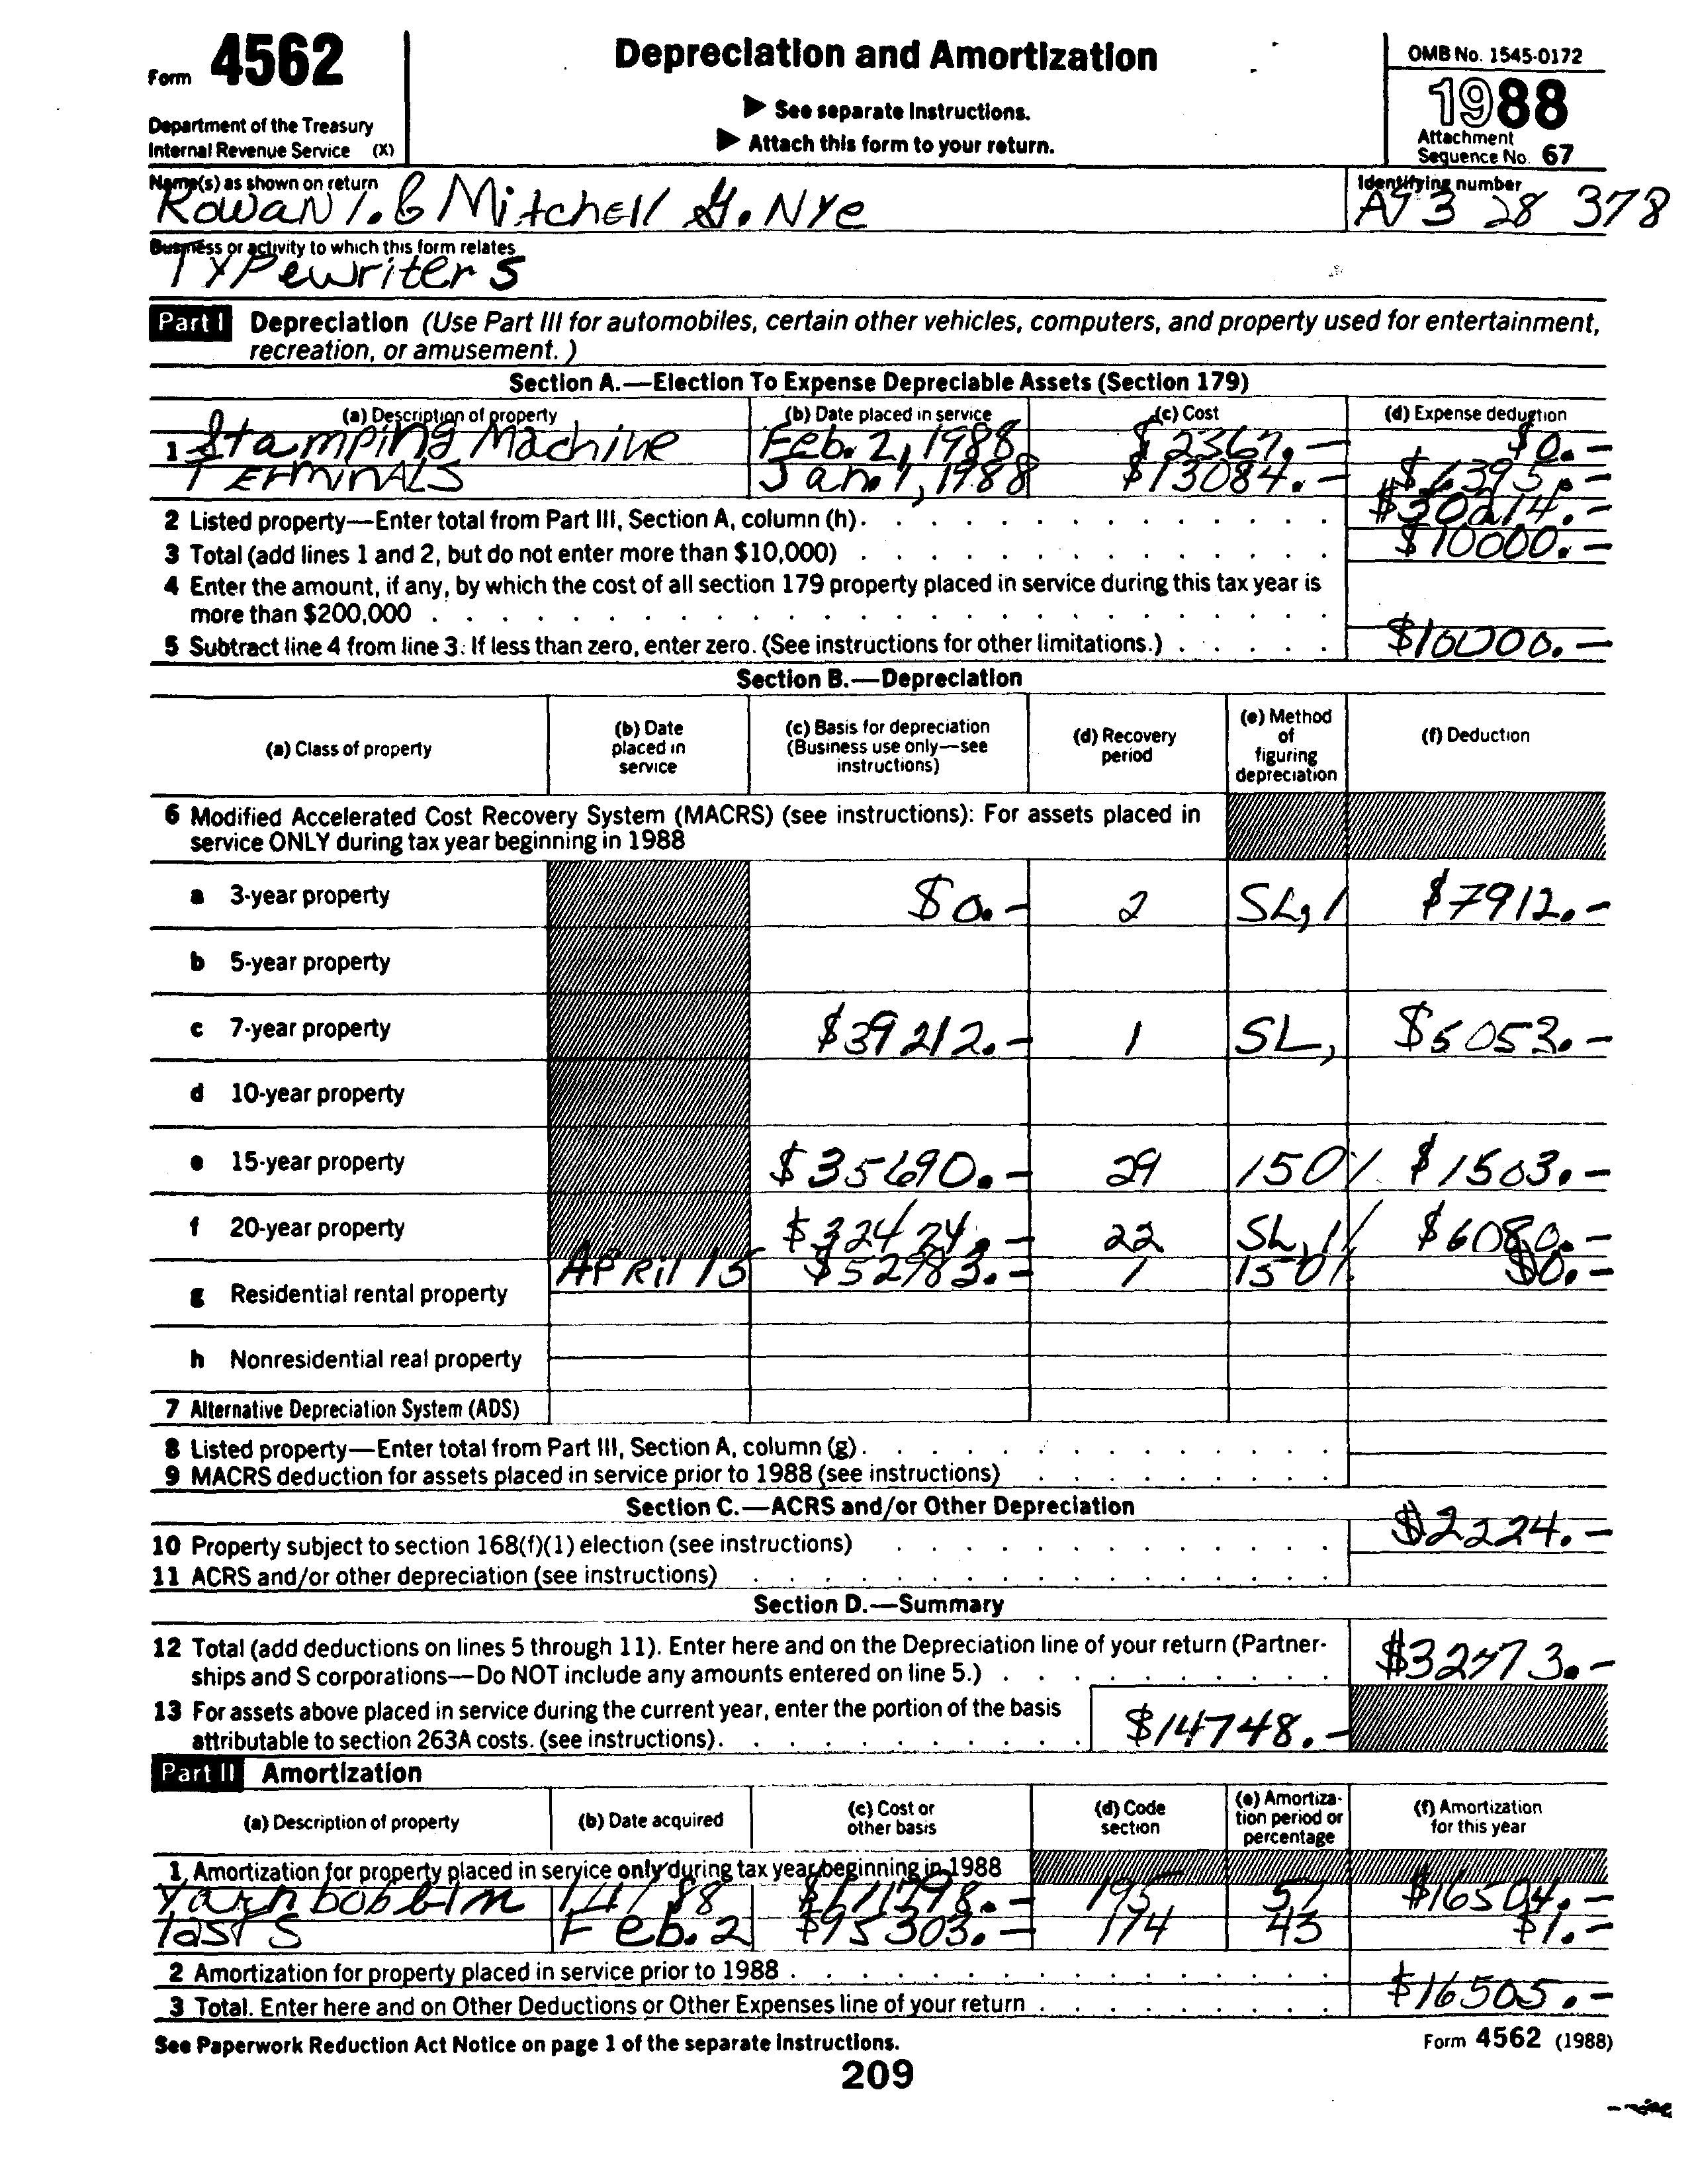 Form 4562
Department of the Treasury
Internal Revenue Service (X)
Depreciation and Amortization
▶ See separate Instructions.
▶ Attach this form to your return.
OMB No. 1545-0172
1988
Attachment
Sequence No. 67
Name(s) as shown on return
Mitchell G. Nye
Identifying number
3 28 378
Business or activity to which this form relates
Typewriters
Part I Depreciation (Use Part III for automobiles, certain other vehicles, computers, and property used for entertainment,
recreation, or amusement.)
Section A.—Election To Expense Depreciable Assets (Section 179)
(a) Description of property (b) Date placed in service (c) Cost (d) Expense deduction
1 Stamping Machine Feb. 2, 1988 $2367.- $0.-
TERMINALS Jan. 1, 1988 $13084.- $6395.-
2 Listed property—Enter total from Part III, Section A, column (h). $30214.-
3 Total (add lines 1 and 2, but do not enter more than $10,000) $10000.-
4 Enter the amount, if any, by which the cost of all section 179 property placed in service during this tax year is
more than $200,000
5 Subtract line 4 from line 3. If less than zero, enter zero. (See instructions for other limitations.) $10000.-
Section B.—Depreciation
(a) Class of property (b) Date placed in service (c) Basis for depreciation (Business use only—see instructions) (d) Recovery period (e) Method of figuring depreciation (f) Deduction
6 Modified Accelerated Cost Recovery System (MACRS) (see instructions): For assets placed in
service ONLY during tax year beginning in 1988
a 3-year property $0.- 2 SL, 1 $7912.-
b 5-year property
c 7-year property $39212.- 1 SL, $5053.-
d 10-year property
e 15-year property $35690.- 29 150% $1503.-
f 20-year property $32424.- 22 SL, $6080.-
April 15 $52983.- 1 150% $0.-
g Residential rental property
h Nonresidential real property
7 Alternative Depreciation System (ADS)
8 Listed property—Enter total from Part III, Section A, column (g).
9 MACRS deduction for assets placed in service prior to 1988 (see instructions)
Section C.—ACRS and/or Other Depreciation
10 Property subject to section 168(f)(1) election (see instructions) $2224.-
11 ACRS and/or other depreciation (see instructions)
Section D.—Summary
12 Total (add deductions on lines 5 through 11). Enter here and on the Depreciation line of your return (Partner-
ships and S corporations—Do NOT include any amounts entered on line 5.)
13 For assets above placed in service during the current year, enter the portion of the basis
attributable to section 263A costs. (see instructions). $14748.-
Part II Amortization
(a) Description of property (b) Date acquired (c) Cost or other basis (d) Code section (e) Amortiza-tion period or percentage (f) Amortization for this year
1 Amortization for property placed in service only during tax year beginning in 1988
Yarn bobbin 195 $16504.-
lasts Feb. 2 $95303.- 174 43 $1.-
2 Amortization for property placed in service prior to 1988
3 Total. Enter here and on Other Deductions or Other Expenses line of your return $16505.-
See Paperwork Reduction Act Notice on page 1 of the separate instructions.
Form 4562 (1988)
209